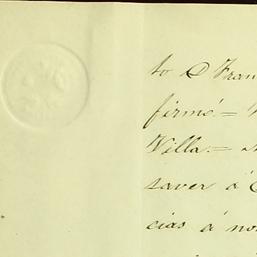 to D Fran
firmé =
Villa. =
saver á
cias á no